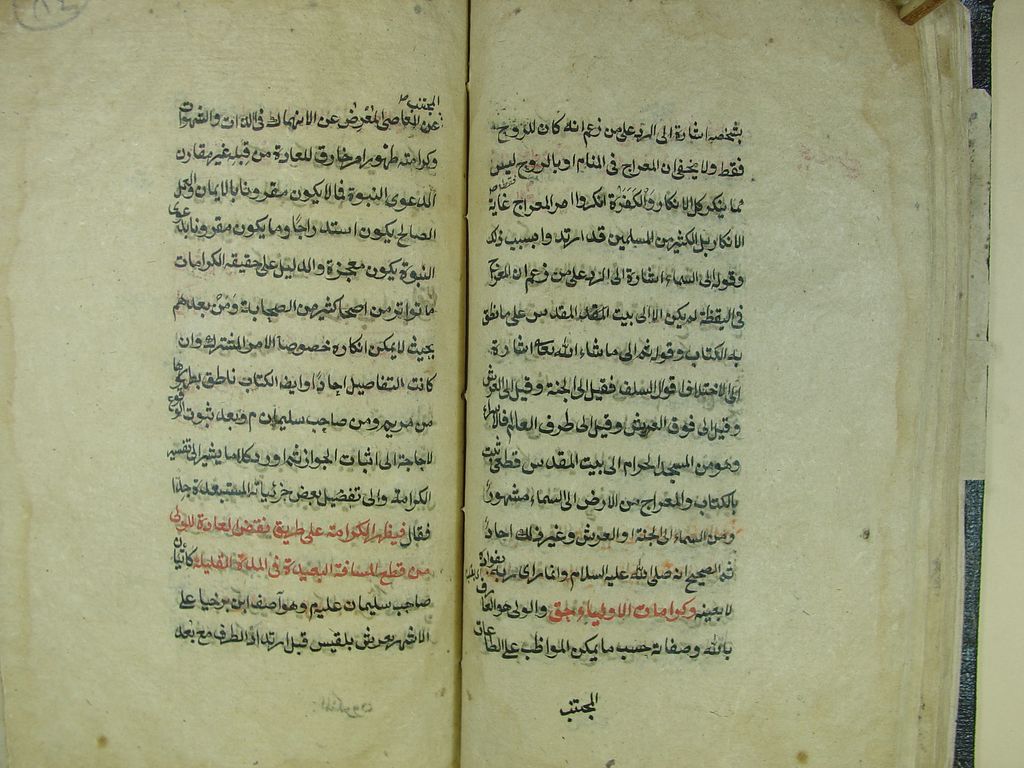 بشخصه اشارة الى الرد على من زعم انه كان للروح
فقط ولا يخفى ان المعراج فى المنام او بالروح ليس
مما ينكر كل الانكار والكفرة انكروا امر المعراج غاية
الانكار بل كثير من المسلمين قد ارتدوا بسبب ذلك
وقوله الى السماء اشارة الى الرد على من زعم ان المعراج
فى اليقظة لم يكن الا الى بيت المقدس على ما نطق
به الكتاب وقوله ثم الى ما شاء الله تعا اشارة
الى اختلاف اقوال السلف فقيل الى الجنة وقيل الى العرش
وقيل الى فوق العرش وقيل الى طرف العالم فالاسراء
وهو من المسجد الحرام الى بيت المقدس قطعى ثبت
بالكتاب والمعراج من الارض الى السماء مشهور
ومن السماء الى الجنة او العرش وغير ذلك احاد
ثم الصحيح انه صلى الله عليه السلام انما راى ربه بفواده
لا بعينه وكرامات الاولياء حق والولى هو العارف
بالله وصفاته حسب ما يمكن المواظب على الطاعات
المجتنب
المجتنب
عن المعاصى المعرض عن الانهماك فى اللذات والشهوات
وكرامته ظهور امر خارق للعادة من قبله غير مقارن
لدعوى النبوة فما لا يكون مقرونا بالايمان والعمل
الصالح يكون استدراجا وما يكون مقرونا بدعوى
النبوة يكون معجزة والدليل على حقيقة الكرامات
ما تواتر من كثير من الصحابة ومن بعدهم
بحيث لا يمكن انكاره خصوصا الامر المشترك وان
كانت التفاصيل احادا وايضا الكتاب ناطق بظهورها
من مريم ومن صاحب سليمان م وبعد ثبوت الوقوع
لا حاجة الى اثبات الجواز ثم اورد كلاما يشير الى تفسير
الكرامة والى تفصيل بعض جزئياته المستبعدة جدا
فقال فيظهر الكرامة على طريق نقض العادة للولى
من قطع المسافة البعيدة فى المدة القليلة كاتيان
صاحب سليمان عليهم وهو آصف ابن برخيا على
الاشهر بعرش بلقيس قبل ارتداد الطرف مع بعد